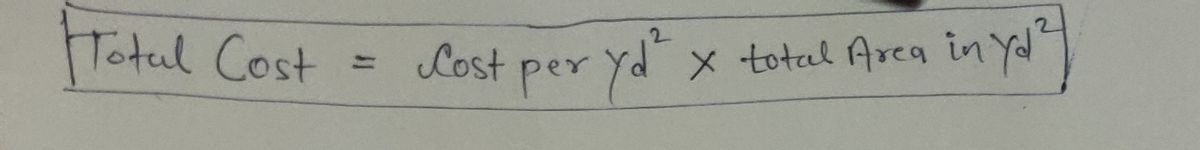 Total Cost = Cost per yd² x total Area in yd²